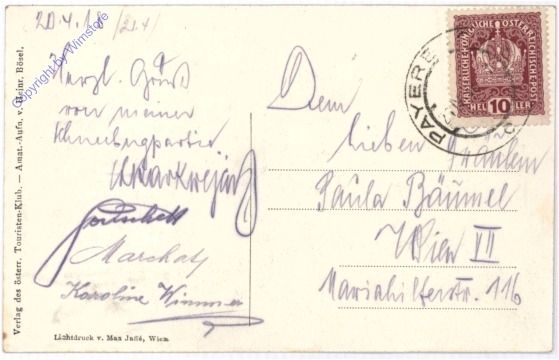 20.4.1
[21.4]
Copyright by Winstore
Herzl. Gruß
von meiner
Schneebergpartie
Marchat
Karoline Wimmer
Verlag des österr. Touristen-Klub. — Amat.-Aufn. v. Heinr. Bösel.
Lichtdruck v. Max Jaffé, Wien
KAISERLICHE KÖNIGLICHE ÖSTERREICHISCHE POST
HEL 10 LER
PAYER
Dem
lieben Fräulein
Paula Bäumel
Wien VII
Mariahilferstr. 116